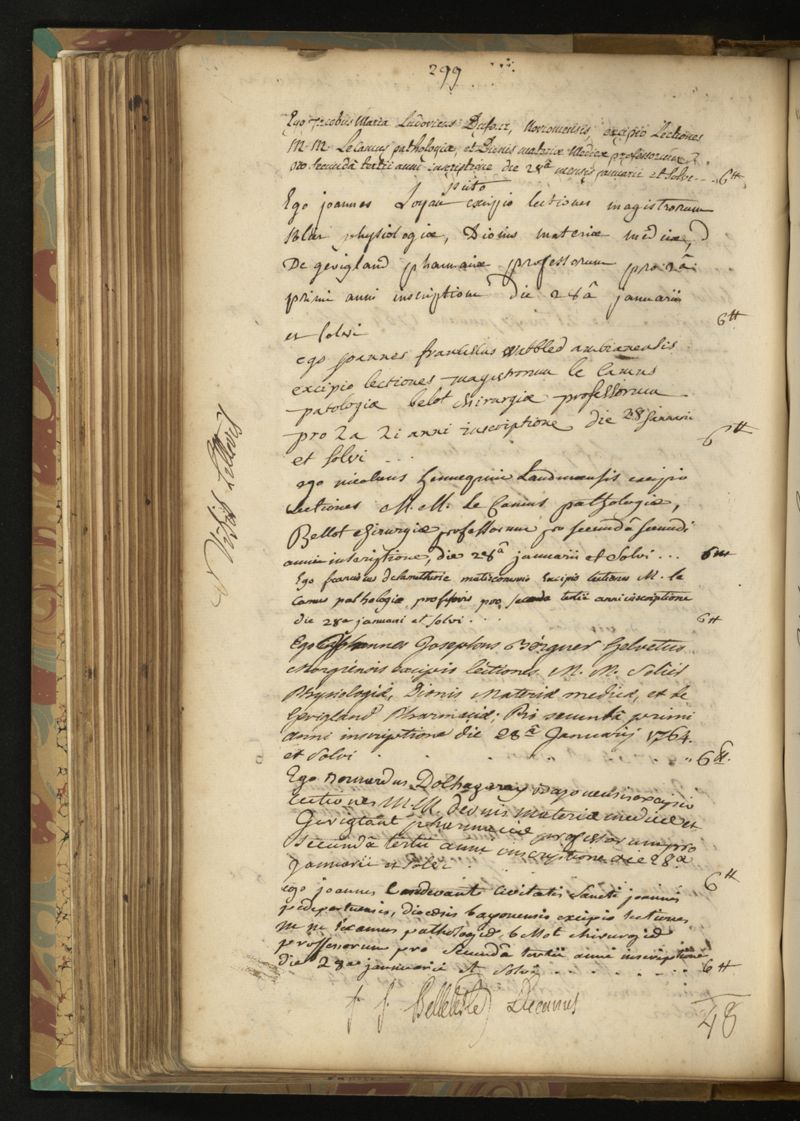 299
Ego jacobus Maria Ludovicus Dufour, excipio Lectiones
M M Lecamus pathologiæ, et Dienis materiæ Medicæ professorum
pro secundâ tertii anni inscriptione die 28ª mensis januarii et solvi .... 6tt
Ego joannes Loyau excipio lectiones magistrorum
physiologiæ, Dionis materiæ medicæ,
De gevigland pharmaciæ professorum pro 2â
primi anni inscriptione die 28â januarii
et solvi 6tt
ego joannes franciscus ambianensis
excipio lectiones magistrorum le Camus
patologiæ belot chirurgiæ professorum
pro 2a 2i anni inscriptione die 28 januarii
et solvi ... 6tt
ego nicolaus hennequin excipio
lectiones M. M. le Camus pathologiæ,
Bellot chirurgiæ professorum pro secundâ secundi
anni inscriptione, die 28ª januarii et solvi ... 6tt
Ego franciscus excipio lectiones M. le
Camus pathologiæ professoris pro secunda tertii anni inscriptione
die 28a januarii et solvi ... 6tt
Ego Johannes Josephus Helvetus
excipio lectiones M. M.
Physiologiæ, Dionis Materiæ medicæ, et de
Gevigland Pharmaciæ; Pro secundâ primi
anni inscriptione die 28â Januarij 1764.
et solvi . . . . . 6tt.
Ego Bernardus Dolhagaray bayonensis excipio
Lectiones M.M. deonis materiæ medicæ et
Gevigland pharmaciæ professorum pro
secundâ tertii anni inscriptione die 28ª
Januarii et solvi 6tt
ego joannes Londevant civitatis Sancti joannis
pedeportuensis, diocesis bayonensis excipio lectiones
m m lecamus pathologiæ bellot chirurgiæ
proffesorum pro secundâ tertii anni inscriptione
die 28a januarii et solvi . . . . . . 6tt
Decanus
48